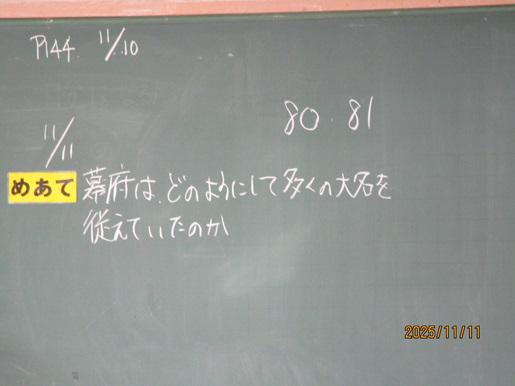 P144. 11/10
80.81
11/11
めあて 幕府は、どのようにして多くの大名を
従えていたのか
2025/11/11